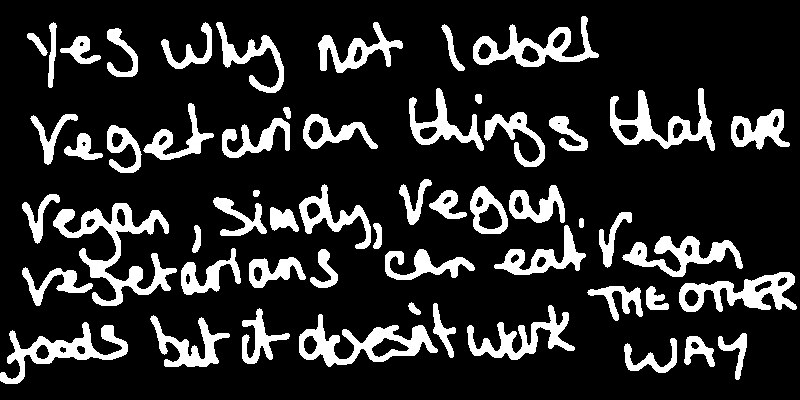 yes why not label
vegetarian things that are
vegan, simply, vegan.
vegetarians can eat vegan
foods but it doesn't work THE OTHER
WAY